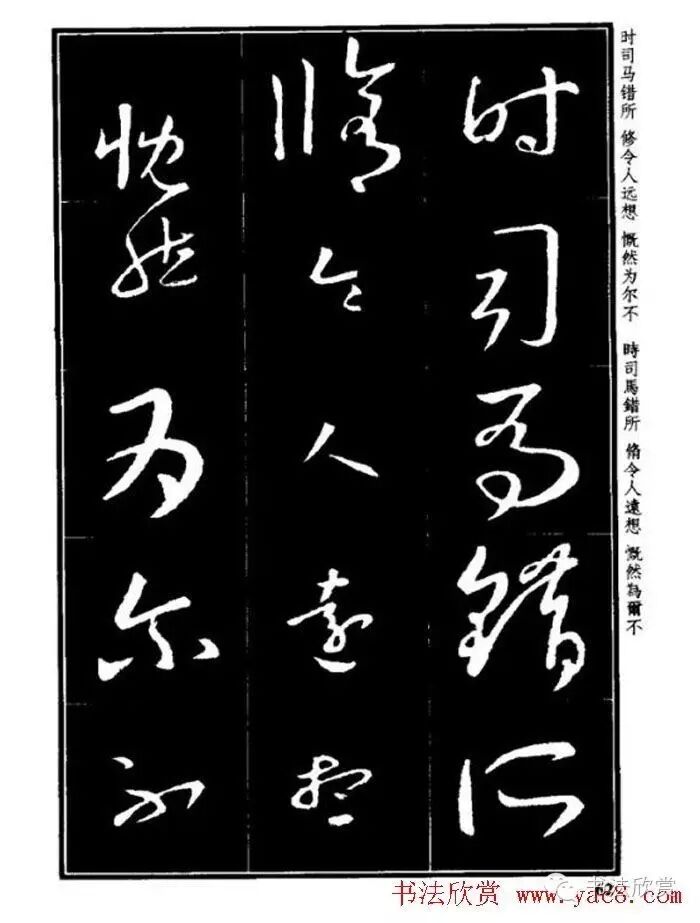 时司马错所
修令人远想
慨然为尔不
时司马错所 修令人远想 慨然为尔不
時司馬錯所 脩令人遠想 慨然為爾不
62
书法欣赏
书法欣赏 www.yac8.com